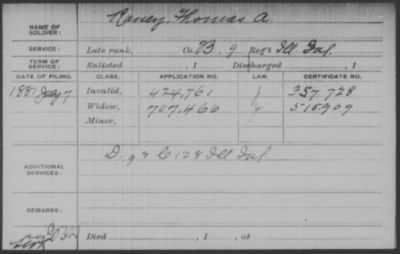 NAME OF SOLDIER: Raney, Thomas A.
SERVICE: Late rank, Co. B. 9 Reg't Ill. Inf.
TERM OF SERVICE: Enlisted , 1 Discharged , 1
DATE OF FILING. CLASS. APPLICATION NO. LAW. CERTIFICATE NO.
1881 July 7 Invalid, 424.761 357.728
Widow, 707.466 515.909
Minor,
D. 9 & C 128 Ill. Inf.
ADDITIONAL SERVICES:
REMARKS:
Died , 1 , at